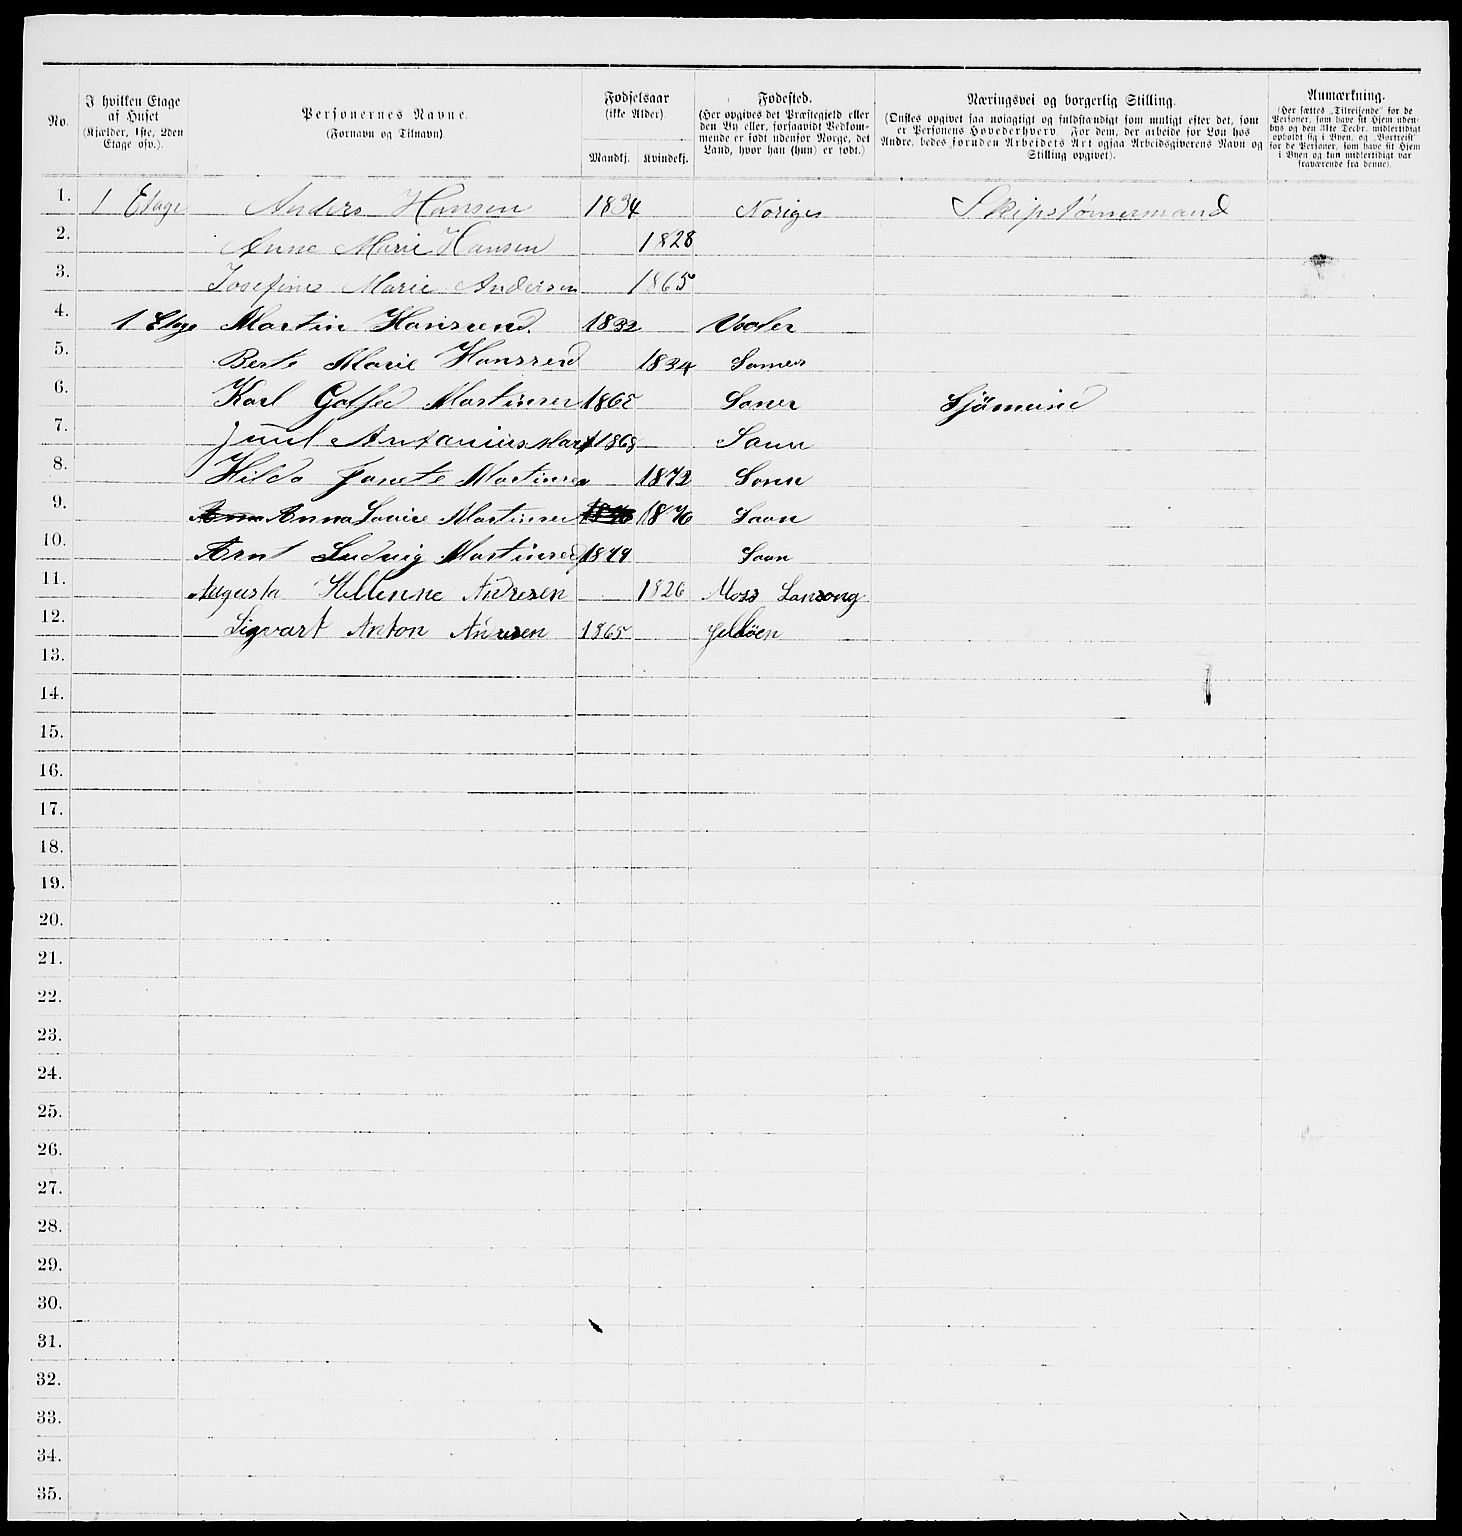 No.
I hvilken Etage af Huset (Kjælder, 1ste, 2den Etage osv.).
Personernes Navne. (Fornavn og Tilnavn).
Fødselsaar (ikke Alder). Mandkj. Kvindekj.
Fødested. (Her opgives det Præstegjeld eller den By eller, forsaavidt Vedkommende er født udenfor Norge, det Land, hvor han (hun) er født.)
Næringsvei og borgerlig Stilling. (Ønskes opgivet saa nøiagtigt og fuldstændigt som muligt efter det, som er Personens Hovederhverv. For dem, der arbeide for Løn hos Andre, bedes foruden Arbeidets Art ogsaa Arbeidsgiverens Navn og Stilling opgivet).
Anmærkning. (Her sættes „Tilreisende" for de Personer, som have sit Hjem udenbys og den 31te Decbr. midlertidigt opholdt sig i Byen, og „Bortreist" for de Personer, som have sit Hjem i Byen og kun midlertidigt var fraværende fra denne).
1. 1 Etage Anders Hansen 1834 Noriges Skipstømermand
2. Anne Marie Hansen 1828
3. Josefine Marie Andersen 1865
4. 1 Etage Martin Hansend. 1832 Vaaler
5. Berte Marie Hanssend 1834 Somer
6. Karl Gotfed Martinsen 1862 Soner Sjömand
7. Juul Antonius Mart 1868 Sonn
8. Hilda Janete Martinsen 1872 Sonn
9. Anna Lovise Martinsen 1876 Soon
10. Arnt Ludvig Martinsen 1879 Soon
11. Augusta Hellenne Andresen 1826 Moss Lansong
12. Sigvart Anton Andresen 1865 Jelløen
13.
14.
15.
16.
17.
18.
19.
20.
21.
22.
23.
24.
25.
26.
27.
28.
29.
30.
31.
32.
33.
34.
35.